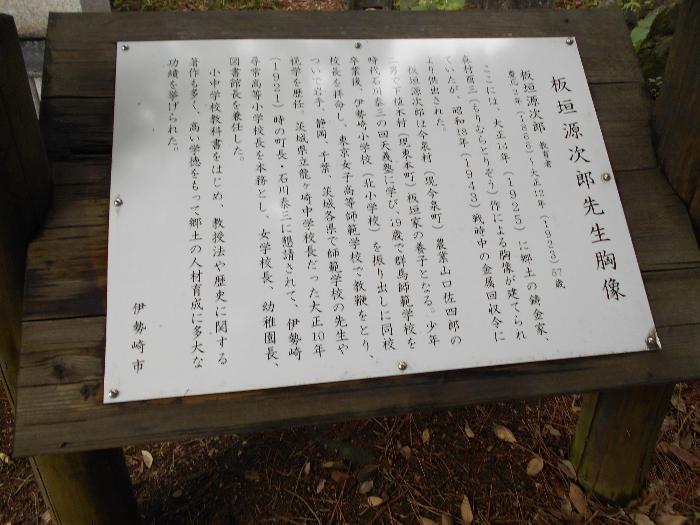 板垣源次郎先生胸像
板垣源次郎 教育者
慶応2年(1866)~大正12年(1923)57歳
ここには、大正14年(1925)に郷土の鋳金家、
森村酉三(もりむらとりぞう)作による胸像が建てられ
ていたが、昭和18年(1943)戦時中の金属回収令に
より供出された。
板垣源次郎は今泉村(現今泉町)農業山口佐四郎の
二男で下植木村(現東本町)板垣家の養子となる。少年
時代石川泰三の回天義塾に学び、19歳で群馬師範学校を
卒業後、伊勢崎小学校(北小学校)を振り出しに同校
校長を拝命し、東京女子高等師範学校で教鞭をとり、
ついで岩手、静岡、千葉、茨城各県で師範学校の先生や
視学を歴任。茨城県立龍ヶ崎中学校長だった大正10年
(1921)時の町長・石川泰三に懇請されて、伊勢崎
尋常高等小学校長を本務とし、女学校長、幼稚園長、
図書館長を兼任した。
小中学校教科書をはじめ、教授法や歴史に関する
著作も多く、高い学徳をもって郷土の人材育成に多大な
功績を挙げられた。
伊勢崎市